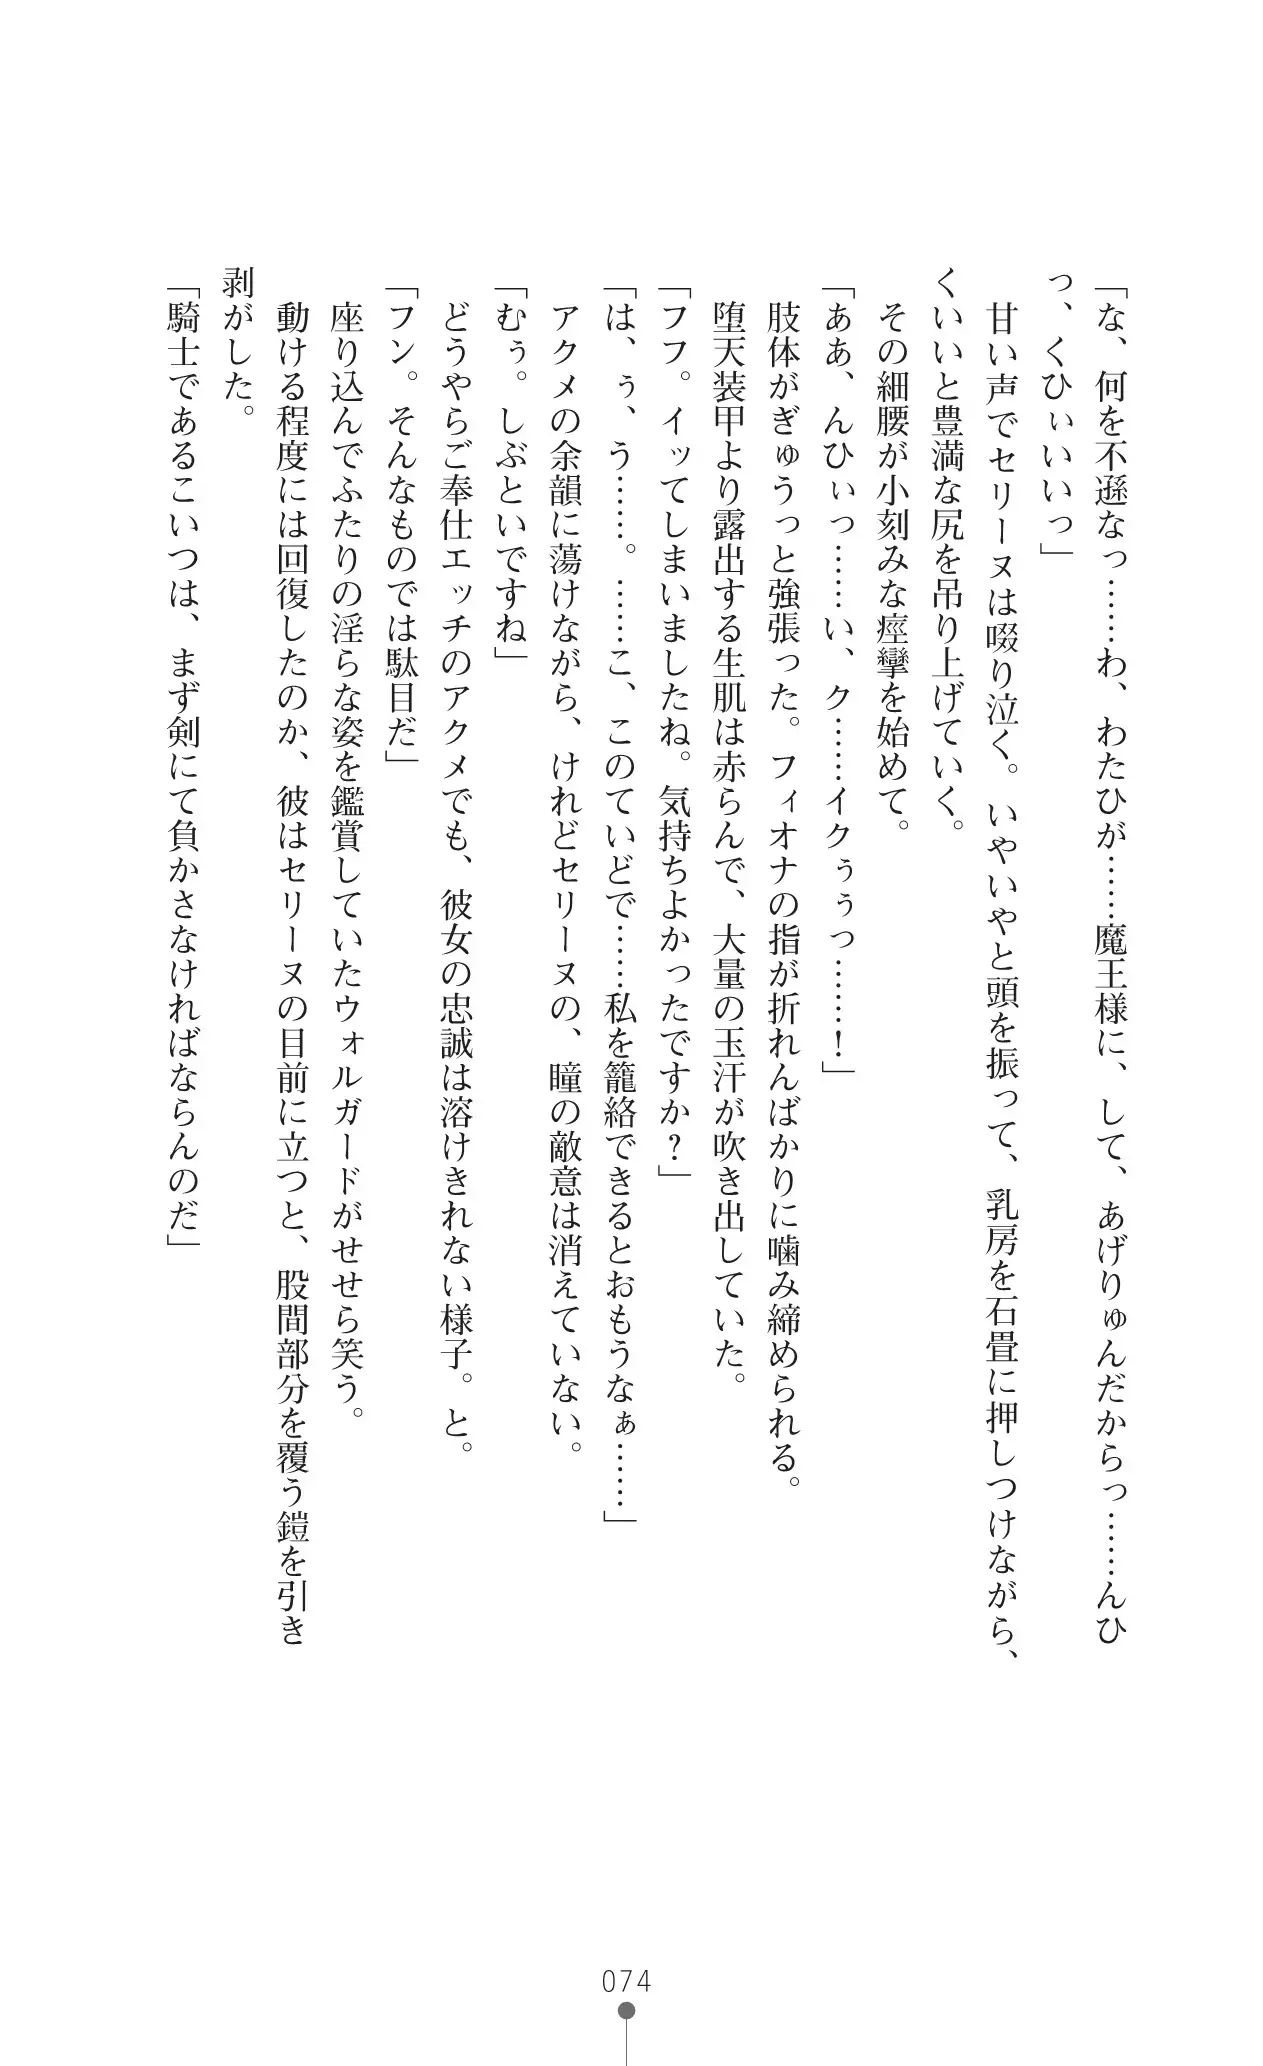 「な、何を不遜なっ……わ、わたひが……魔王様に、して、あげりゅんだからっ……んひ
っ、くひぃいいっ」
　甘い声でセリーヌは啜り泣く。いやいやと頭を振って、乳房を石畳に押しつけながら、
くいいと豊満な尻を吊り上げていく。
　その細腰が小刻みな痙攣を始めて。
「ああ、んひぃっ……い、ク……イクぅぅっ……！」
　肢体がぎゅうっと強張った。フィオナの指が折れんばかりに噛み締められる。
　堕天装甲より露出する生肌は赤らんで、大量の玉汗が吹き出していた。
「フフ。イッてしまいましたね。気持ちよかったですか？」
「は、ぅ、う……。……こ、このていどで……私を籠絡できるとおもうなぁ……」
　アクメの余韻に蕩けながら、けれどセリーヌの、瞳の敵意は消えていない。
「むぅ。しぶといですね」
　どうやらご奉仕エッチのアクメでも、彼女の忠誠は溶けきれない様子。と。
「フン。そんなものでは駄目だ」
　座り込んでふたりの淫らな姿を鑑賞していたウォルガードがせせら笑う。
　動ける程度には回復したのか、彼はセリーヌの目前に立つと、股間部分を覆う鎧を引き
剥がした。
「騎士であるこいつは、まず剣にて負かさなければならんのだ」
074